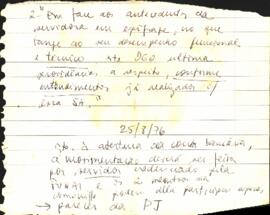 2. "Em face aos antecedentes da
servidora em epígrafe, no que
tange ao seu desempenho funcional
e técnico, sto DGO ultima
providências a respeito, conforme
entendimentos já realizados c/
essa SA."
25/8/76
A abertura da conta bancária,
a movimentação deverá ser feita
por servidor credenciado pela
FUNAI e os 2 membros da
comissão podem dela participar
→ parecer da PJ